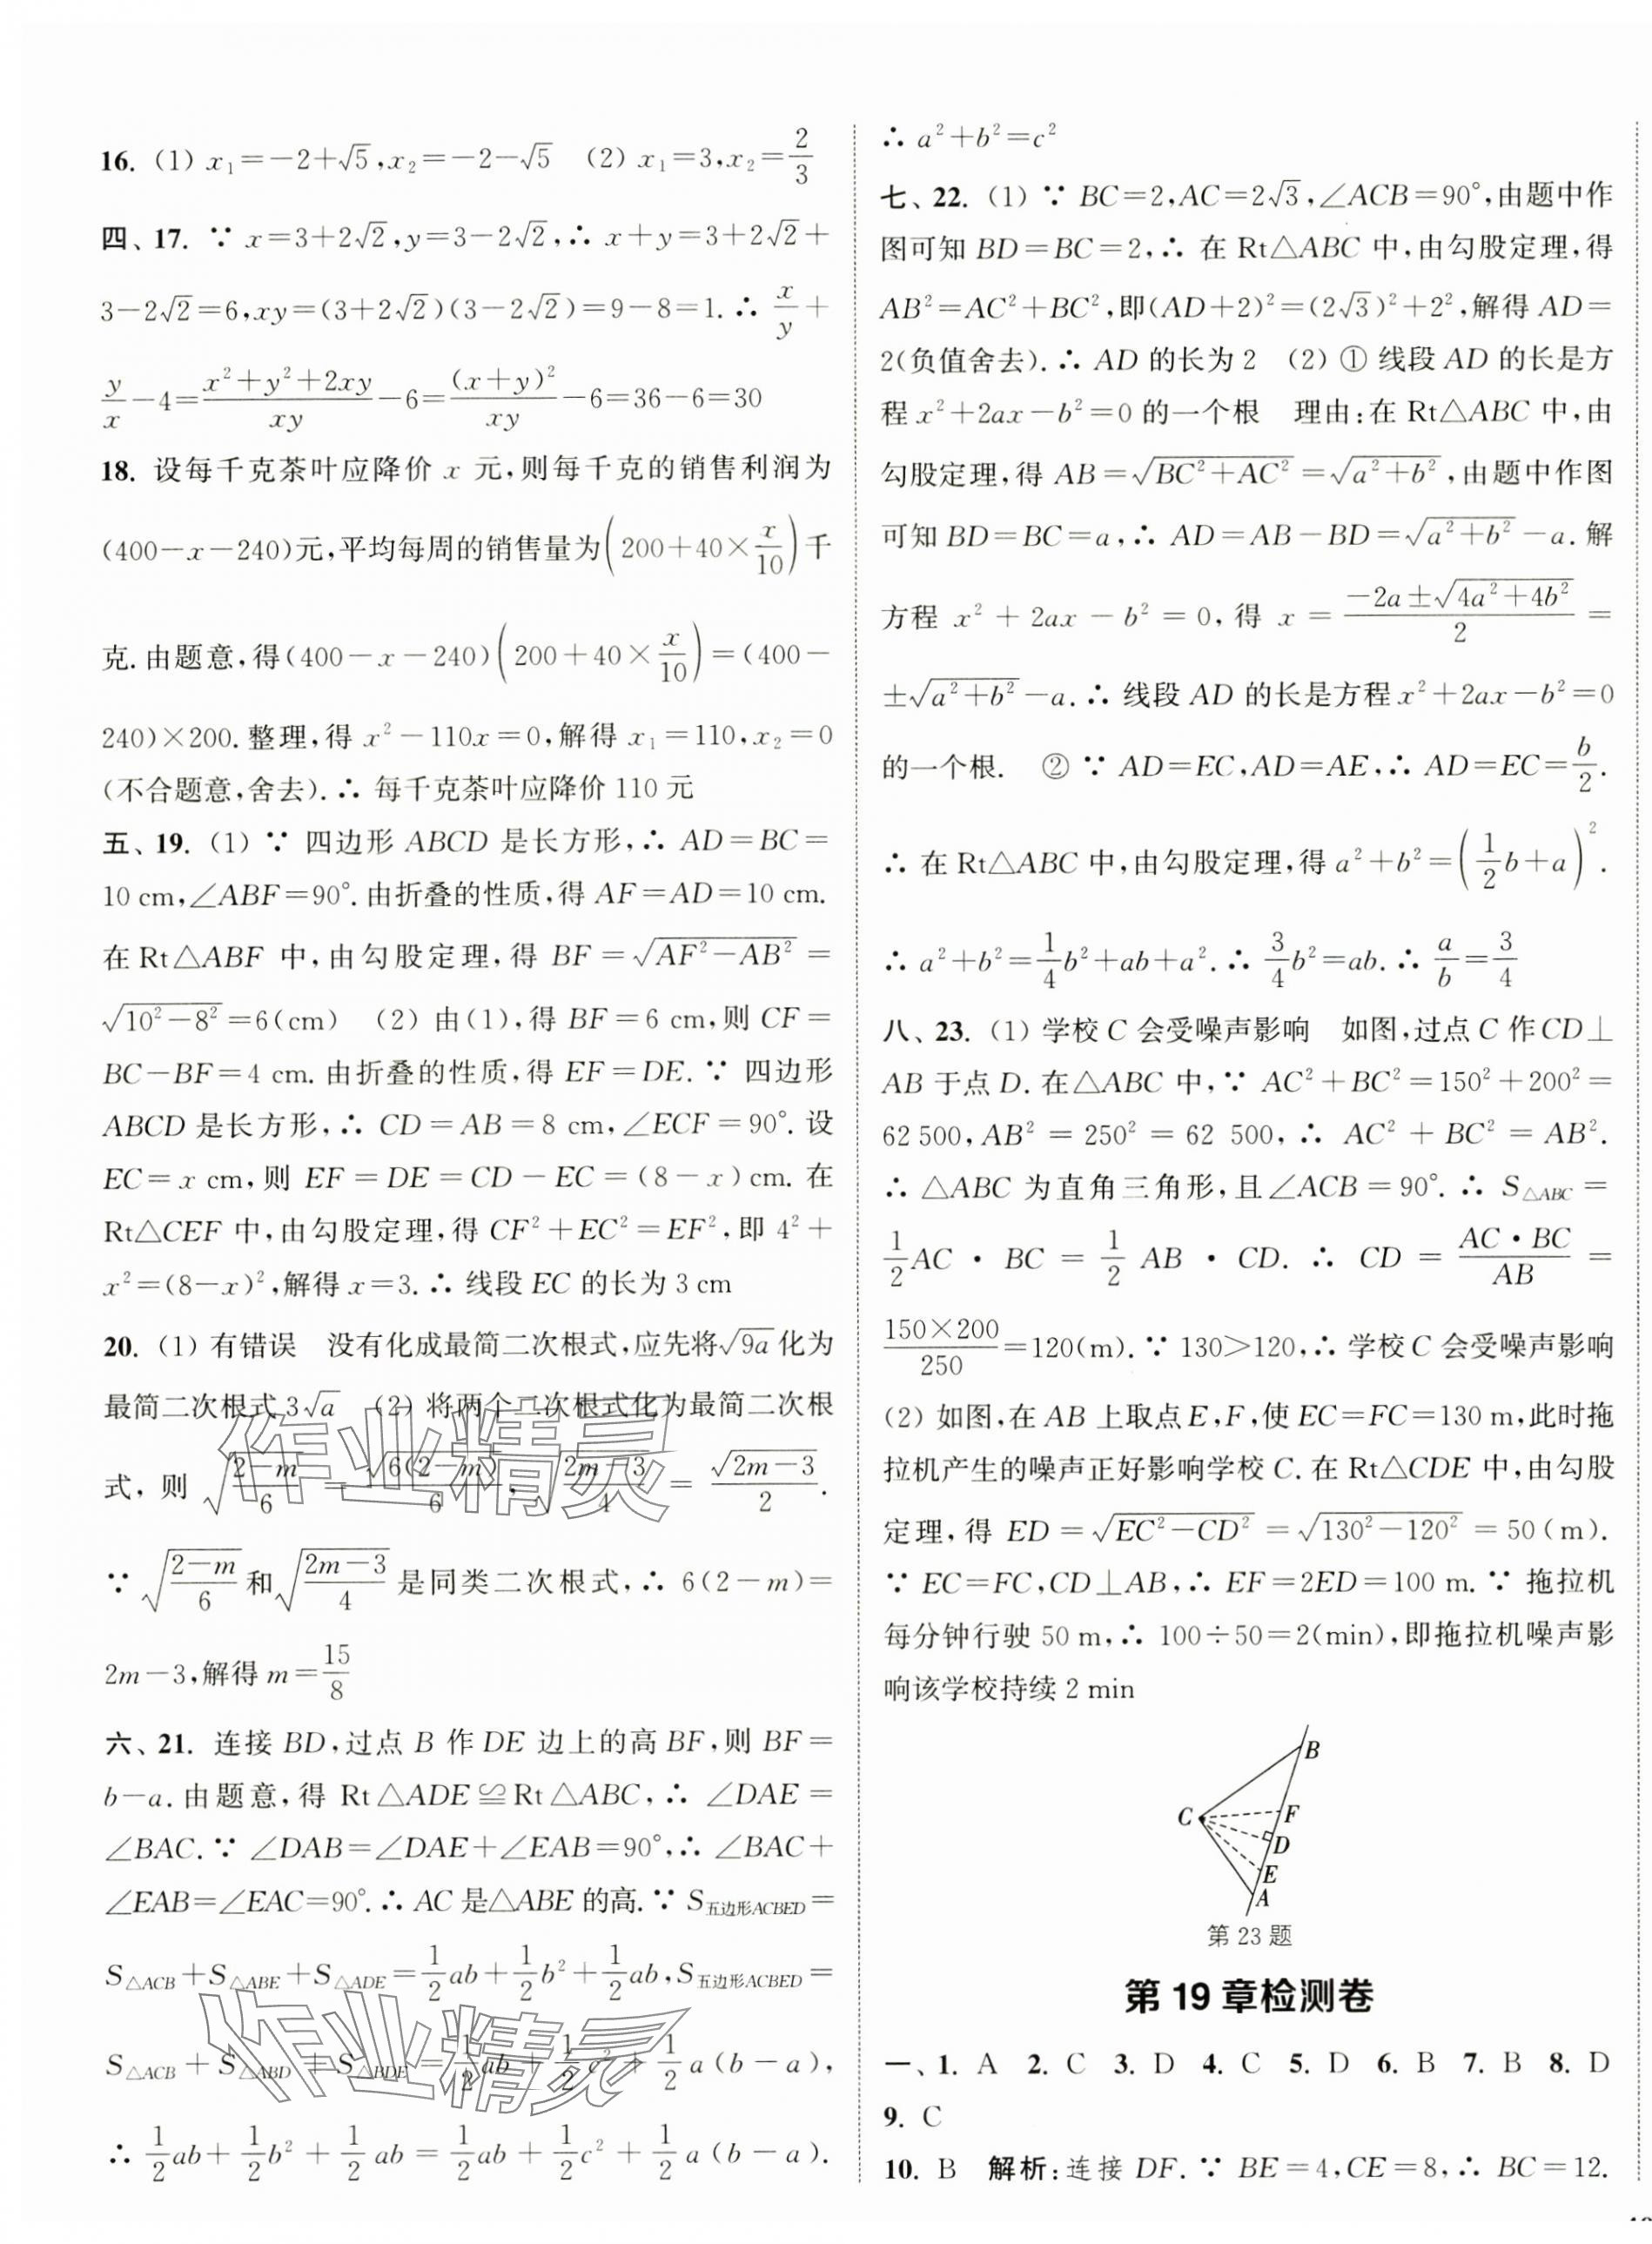 16. (1) x₁=−2+√5,x₂=−2−√5 (2) x₁=3,x₂=2/3
四、17. ∵ x=3+2√2,y=3−2√2,∴ x+y=3+2√2+
3−2√2=6,xy=(3+2√2)(3−2√2)=9−8=1.∴ x/y+
y/x−4=(x²+y²+2xy)/xy−6=(x+y)²/xy−6=36−6=30
18. 设每千克茶叶应降价 x 元,则每千克的销售利润为
(400−x−240)元,平均每周的销售量为(200+40×x/10)千
克.由题意,得(400−x−240)(200+40×x/10)=(400−
240)×200.整理,得 x²−110x=0,解得 x₁=110,x₂=0
(不合题意,舍去).∴ 每千克茶叶应降价 110 元
五、19. (1) ∵ 四边形 ABCD 是长方形,∴ AD=BC=
10 cm,∠ABF=90°.由折叠的性质,得 AF=AD=10 cm.
在 Rt△ABF 中,由勾股定理,得 BF=√(AF²−AB²)=
√(10²−8²)=6(cm) (2) 由(1),得 BF=6 cm,则 CF=
BC−BF=4 cm.由折叠的性质,得 EF=DE.∵ 四边形
ABCD 是长方形,∴ CD=AB=8 cm,∠ECF=90°.设
EC=x cm,则 EF=DE=CD−EC=(8−x)cm.在
Rt△CEF 中,由勾股定理,得 CF²+EC²=EF²,即 4²+
x²=(8−x)²,解得 x=3.∴ 线段 EC 的长为 3 cm
20. (1) 有错误 没有化成最简二次根式,应先将√(9a)化为
最简二次根式 3√a (2) 将两个二次根式化为最简二次根
式,则 √((2−m)/6)=√(6(2−m))/6,√((2m−3)/4)=√(2m−3)/2.
∵ √((2−m)/6)和√((2m−3)/4)是同类二次根式,∴ 6(2−m)=
2m−3,解得 m=15/8
六、21. 连接 BD,过点 B 作 DE 边上的高 BF,则 BF=
b−a.由题意,得 Rt△ADE≌Rt△ABC,∴ ∠DAE=
∠BAC.∵ ∠DAB=∠DAE+∠EAB=90°,∴ ∠BAC+
∠EAB=∠EAC=90°.∴ AC 是△ABE 的高.∵ S五边形ACBED=
S△ACB+S△ABE+S△ADE=1/2ab+1/2b²+1/2ab,S五边形ACBED=
S△ACB+S△ABD+S△BDE=1/2ab+1/2c²+1/2a(b−a),
∴ 1/2ab+1/2b²+1/2ab=1/2ab+1/2c²+1/2a(b−a).
∴ a²+b²=c²
七、22. (1) ∵ BC=2,AC=2√3,∠ACB=90°,由题中作
图可知 BD=BC=2,∴ 在 Rt△ABC 中,由勾股定理,得
AB²=AC²+BC²,即(AD+2)²=(2√3)²+2²,解得 AD=
2(负值舍去).∴ AD 的长为 2 (2) ① 线段 AD 的长是方
程 x²+2ax−b²=0 的一个根 理由:在 Rt△ABC 中,由
勾股定理,得 AB=√(BC²+AC²)=√(a²+b²),由题中作图
可知 BD=BC=a,∴ AD=AB−BD=√(a²+b²)−a.解
方程 x²+2ax−b²=0,得 x=(−2a±√(4a²+4b²))/2=
±√(a²+b²)−a.∴ 线段 AD 的长是方程 x²+2ax−b²=0
的一个根. ② ∵ AD=EC,AD=AE,∴ AD=EC=b/2.
∴ 在 Rt△ABC 中,由勾股定理,得 a²+b²=(1/2b+a)².
∴ a²+b²=1/4b²+ab+a².∴ 3/4b²=ab.∴ a/b=3/4
八、23. (1) 学校 C 会受噪声影响 如图,过点 C 作 CD⊥
AB 于点 D.在△ABC 中,∵ AC²+BC²=150²+200²=
62 500,AB²=250²=62 500,∴ AC²+BC²=AB².
∴ △ABC 为直角三角形,且∠ACB=90°.∴ S△ABC=
1/2AC·BC=1/2AB·CD.∴ CD=AC·BC/AB=
150×200/250=120(m).∵ 130>120,∴ 学校 C 会受噪声影响
(2) 如图,在 AB 上取点 E,F,使 EC=FC=130 m,此时拖
拉机产生的噪声正好影响学校 C.在 Rt△CDE 中,由勾股
定理,得 ED=√(EC²−CD²)=√(130²−120²)=50(m).
∵ EC=FC,CD⊥AB,∴ EF=2ED=100 m.∵ 拖拉机
每分钟行驶 50 m,∴ 100÷50=2(min),即拖拉机噪声影
响该学校持续 2 min
B
C
F
D
E
A
第 23 题
第 19 章检测卷
一、1. A 2. C 3. D 4. C 5. D 6. B 7. B 8. D
9. C
10. B 解析:连接 DF.∵ BE=4,CE=8,∴ BC=12.
作业精灵
作业精灵